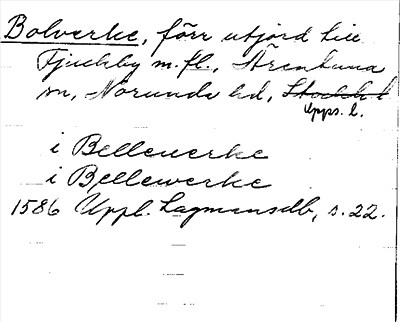 Bolverke, förr utjord till
Fjuckby m.fl., Ärentuna
sn, Norunda hd, Stockh. l.
Upps. l.
i Belleuerke
i Bellewerke
1586 Uppl. Lagmansdb, s. 22.